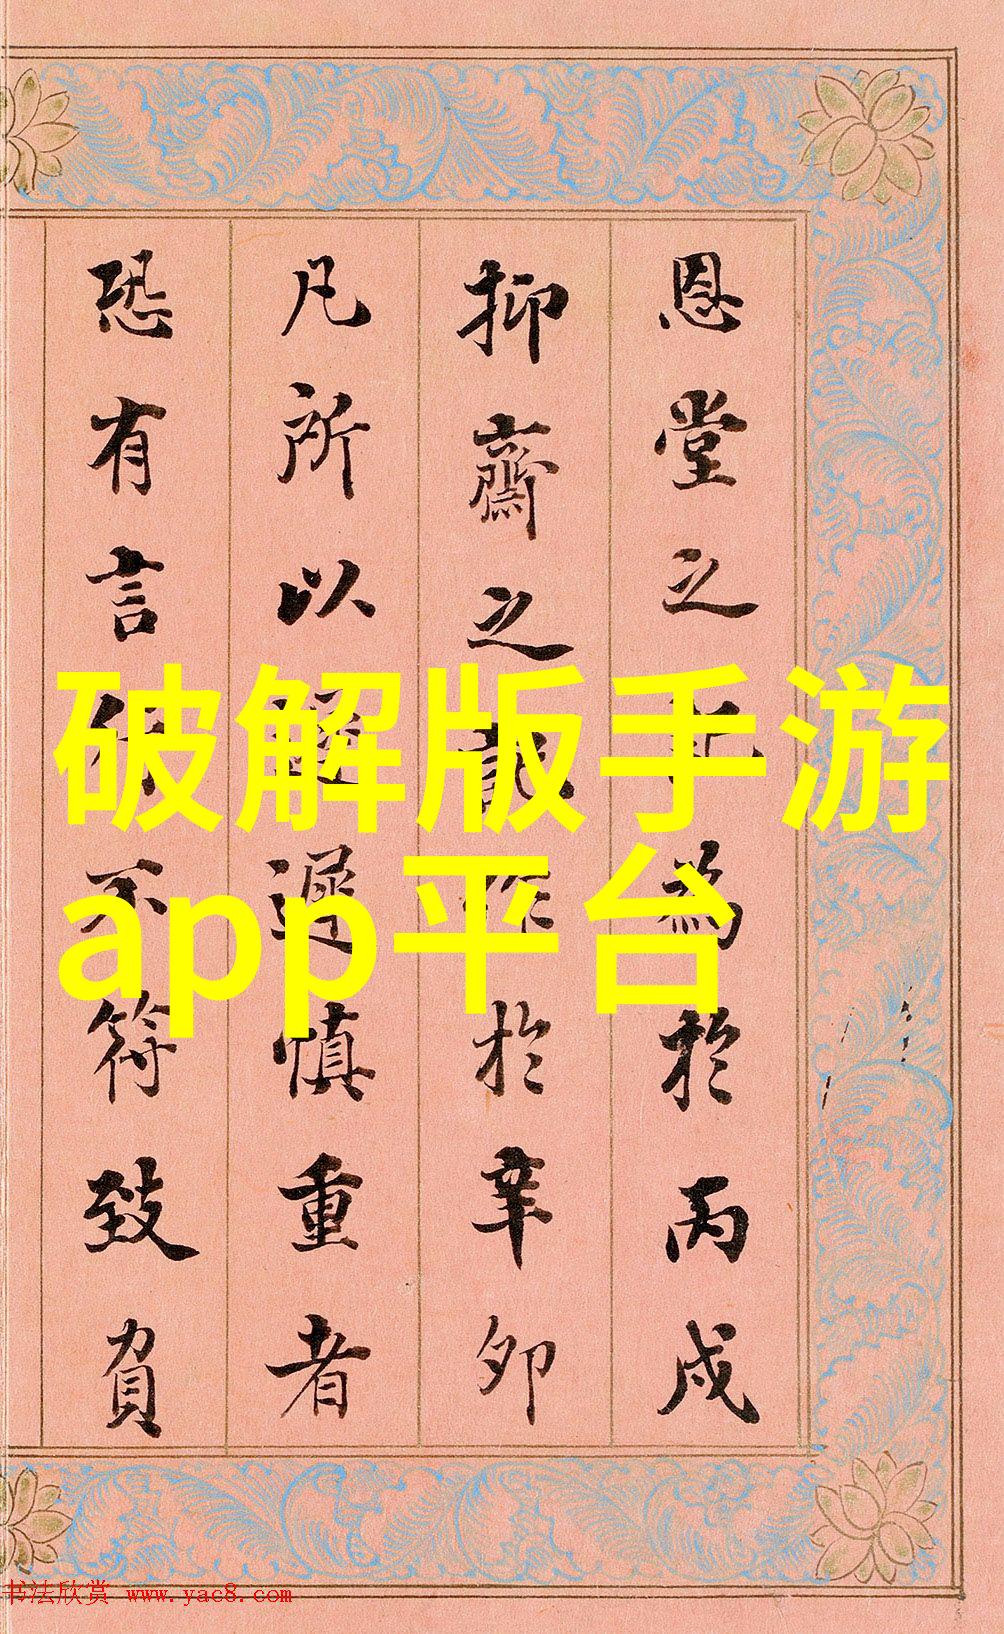 恩堂之為於丙戌
抑齋之作於辛卯
凡所以遲慎重者
恐有言行不符致負
破解版手游
app平台
书法欣赏 www.yac8.com